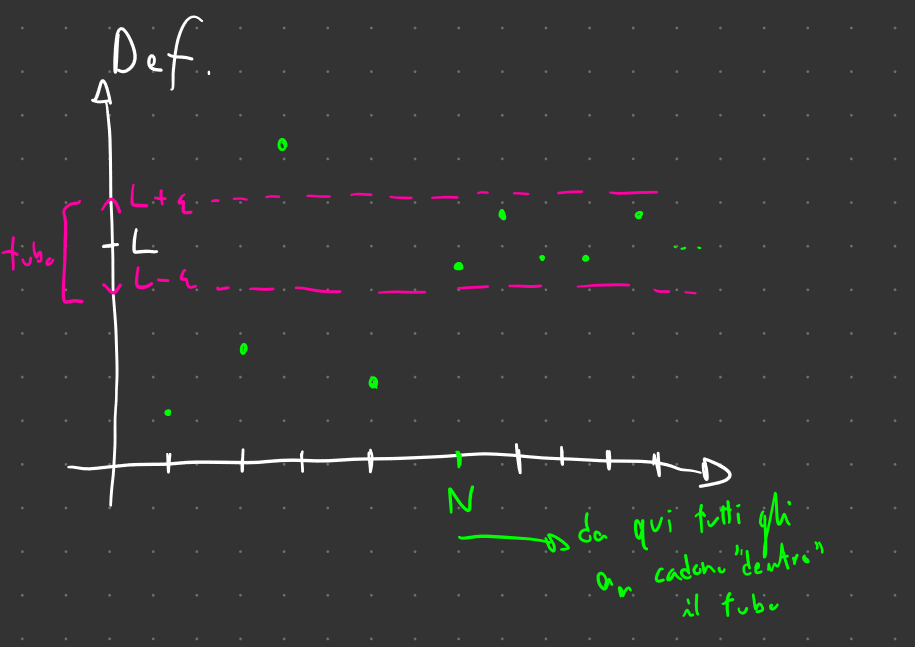 Def.
L+ε
L
tubo
L-ε
...
N
da qui tutti gli
an cadono "dentro"
il tubo